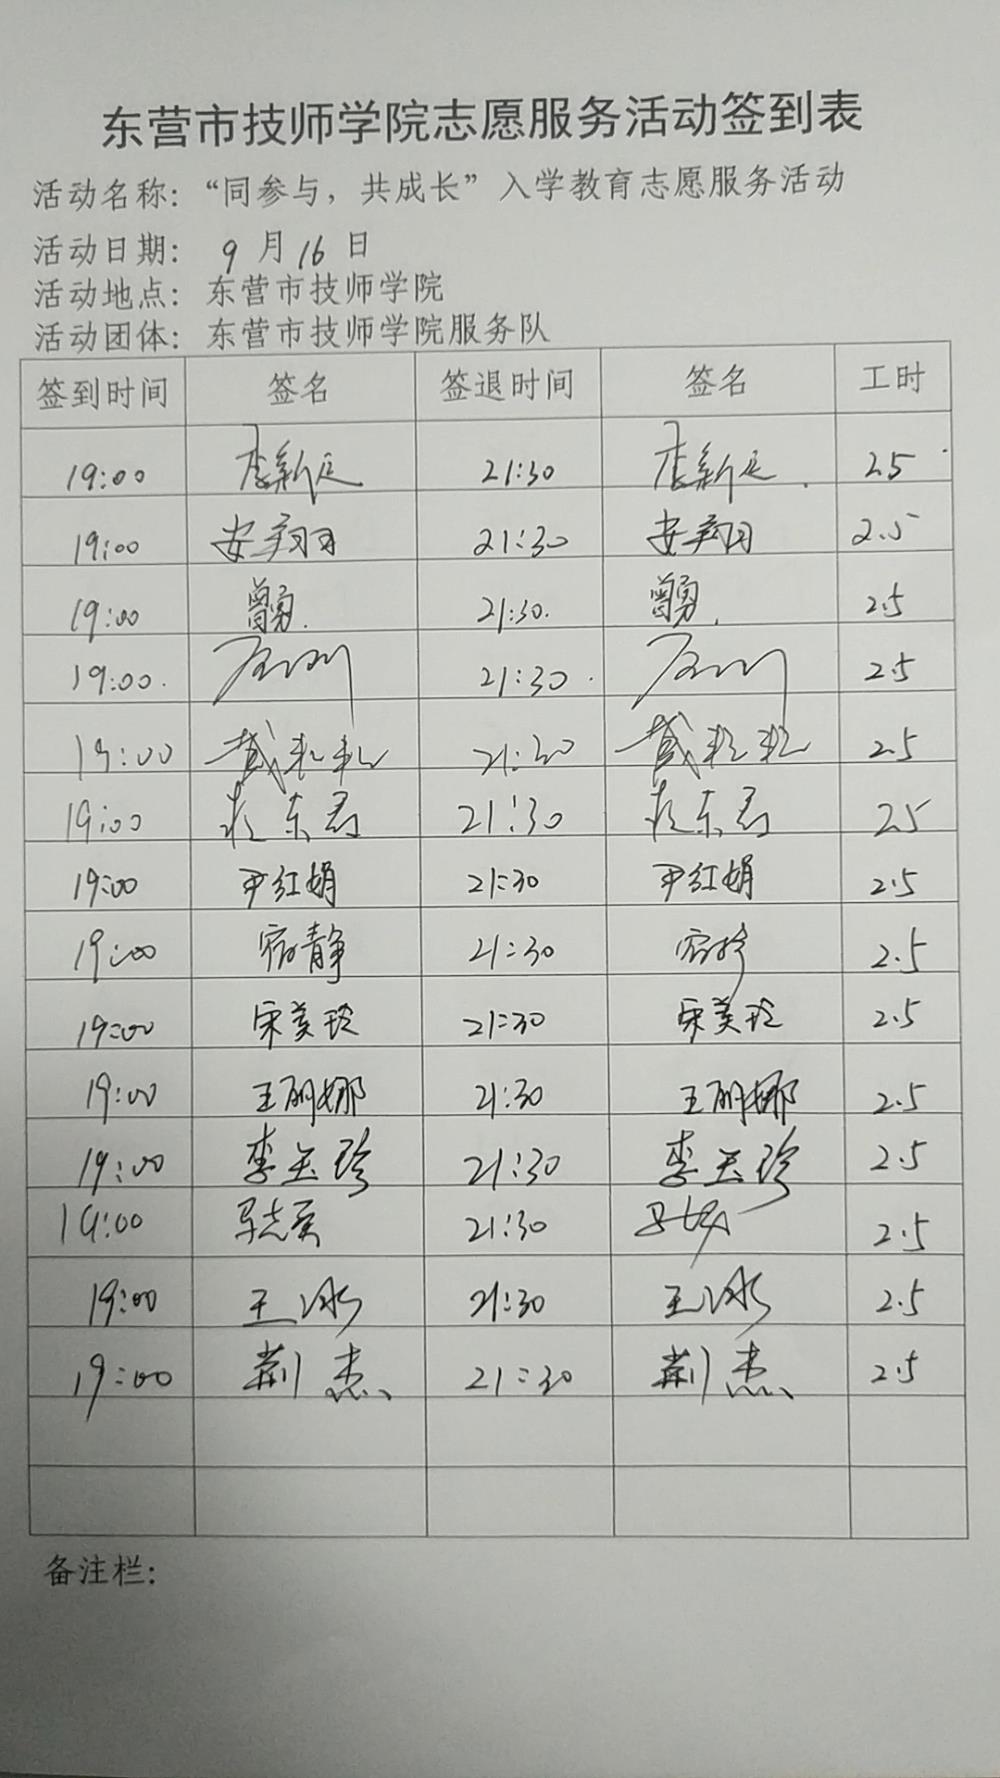 东营市技师学院志愿服务活动签到表
活动名称：“同参与，共成长”入学教育志愿服务活动
活动日期： 9 月 16 日
活动地点： 东营市技师学院
活动团体： 东营市技师学院服务队
签到时间 签名 签退时间 签名 工时
19:00 李新廷 21:30 李新廷 25
19:00 安翔羽 21:30 安翔羽 2.5
19:00 曾勇 21:30 曾勇 2.5
19:00 21:30 2.5
19:00 21:30 2.5
19:00 东君 21:30 东君 25
19:00 尹红娟 21:30 尹红娟 2.5
19:00 宿静 21:30 宿静 2.5
19:00 宋美玲 21:30 宋美玲 2.5
19:00 王丽娜 21:30 王丽娜 2.5
19:00 李玉珍 21:30 李玉珍 2.5
19:00 21:30 2.5
19:00 王冰 21:30 王冰 2.5
19:00 荆杰 21:30 荆杰 2.5
备注栏：